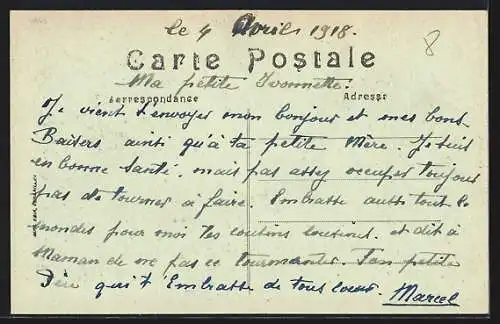 le 4 Avrils 1918.
8
Carte Postale
Ma petite Yvonnette.
Correspondance
Adresse
Je vient t'envoyer mon bonjour et mes bons
Baisers ainsi qu'à ta petite Mère. Je suis
en bonne santé, mais pas assez occuper toujours
pas de tourner à faire. Embrasse aussi tout le
mondes pour moi tes cousins cousines et dit à
Maman de ne pas ce tourmenter. Ton petite
Père qui t'Embrasse de tous coeur. Marcel